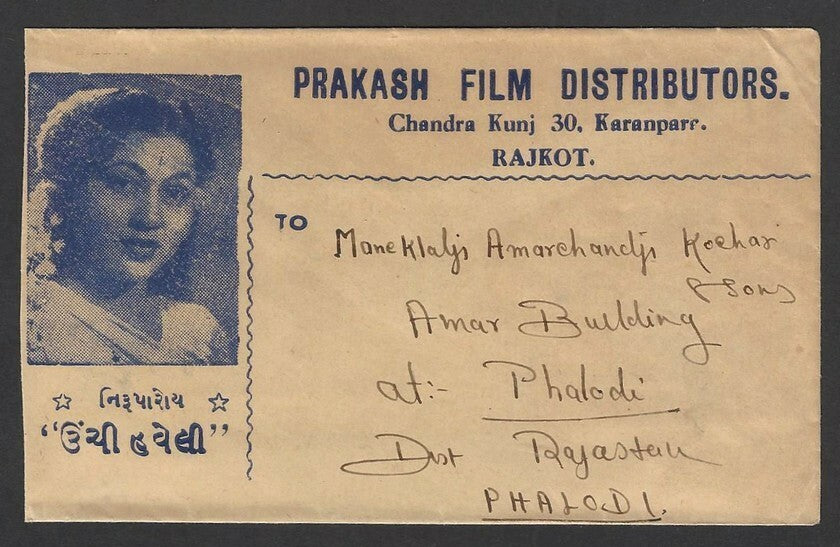 PRAKASH FILM DISTRIBUTORS.
Chandra Kunj 30, Karanpara.
RAJKOT.
TO
Maneklalji Amarchandji Kochar
& Sons
Amar Building
at:- Phalodi
Dist Rajastan
PHALODI.
☆ નિરૂપારોય ☆
"ઉંચી હવેલી"